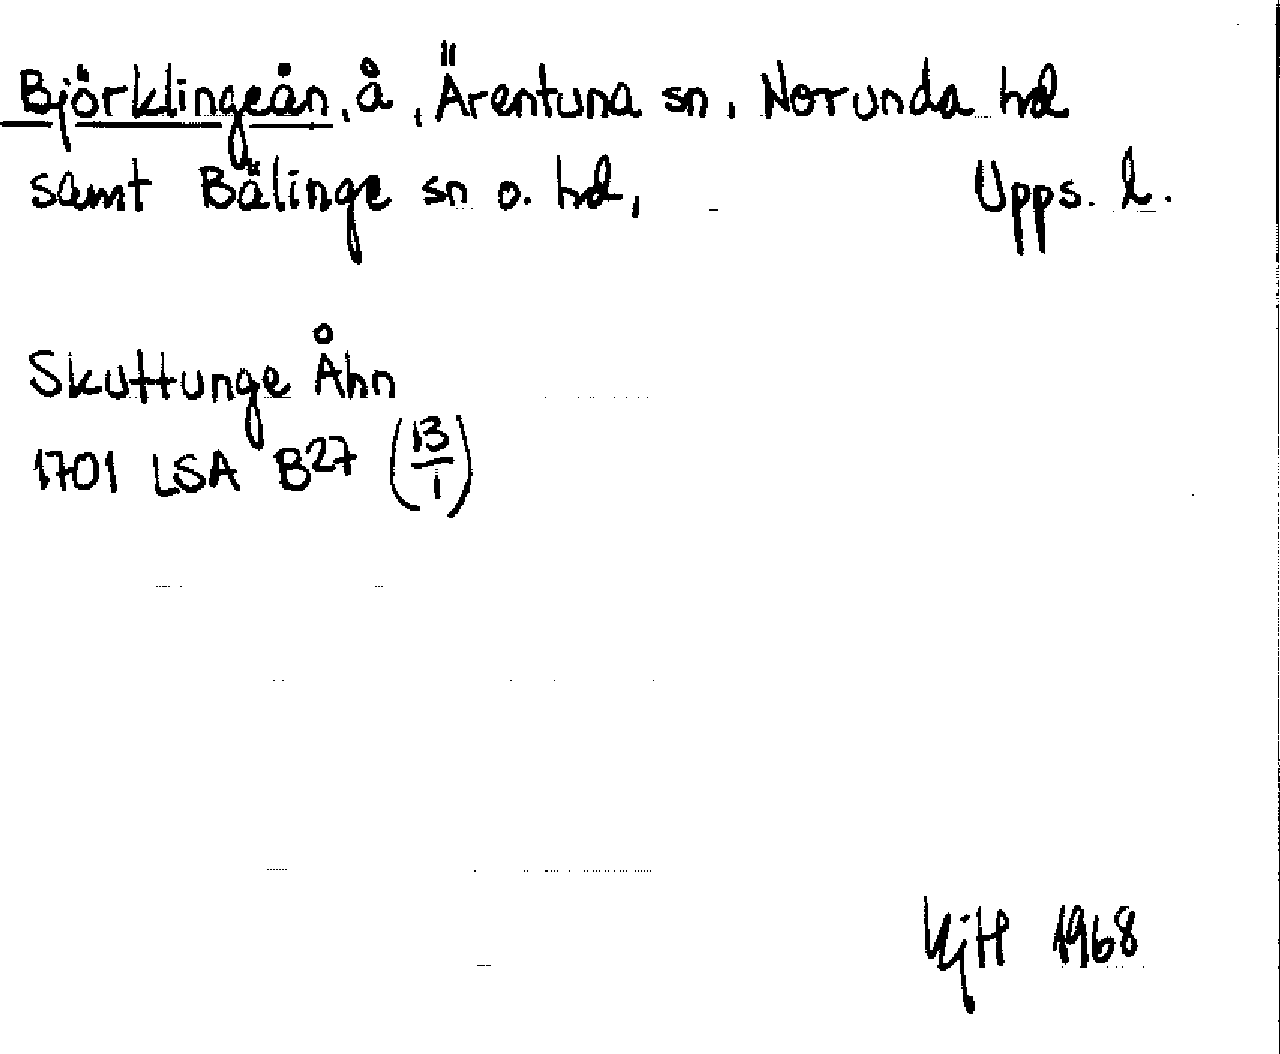 Björklingeån, å, Ärentuna sn, Norunda hd
samt Bälinge sn o. hd, Upps. l.
Skuttunge Åhn
1701 LSA B27 (13/1)
KjH 1968